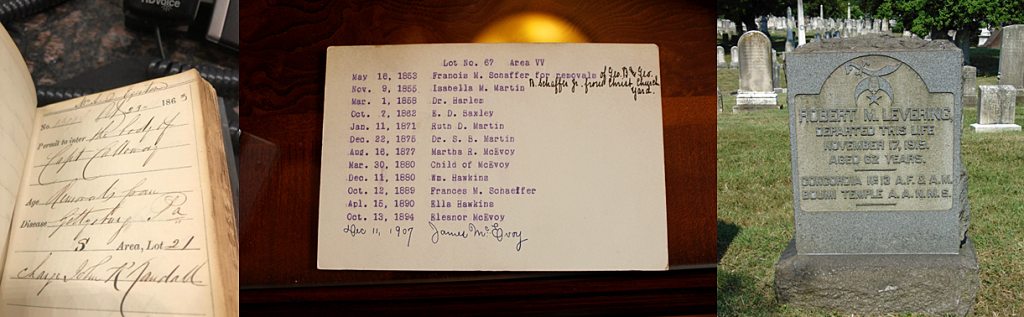 HDvoice
1863
No.
Permit to inter the body of
Capt Calloway
Age Removals from
Disease Gettysburg Pa
S Area, Lot 21
charge John K Randall
Lot No. 67 Area VV
May 16, 1853 Francis M. Schaffer for removals of Geo. B & Geo.
B. Schaffer Jr. from Christ Church
Yard.
Nov. 9, 1855 Isabella M. Martin
Mar. 1, 1858 Dr. Harlen
Oct. 7, 1862 E. D. Baxley
Jan. 11, 1871 Ruth D. Martin
Dec. 22, 1875 Dr. S. B. Martin
Aug. 16, 1877 Martha R. McEvoy
Mar. 30, 1880 Child of McEvoy
Dec. 11, 1880 Wm. Hawkins
Oct. 12, 1889 Frances M. Schaeffer
Apl. 15, 1890 Ella Hawkins
Oct. 13, 1894 Eleanor McEvoy
Dec 11, 1907 James McEvoy
ROBERT M. LEVERING
DEPARTED THIS LIFE
NOVEMBER 17, 1919.
AGED 62 YEARS.
CONCORDIA No 13 A.F. & A.M.
BOUMI TEMPLE A.A.N.M.S.